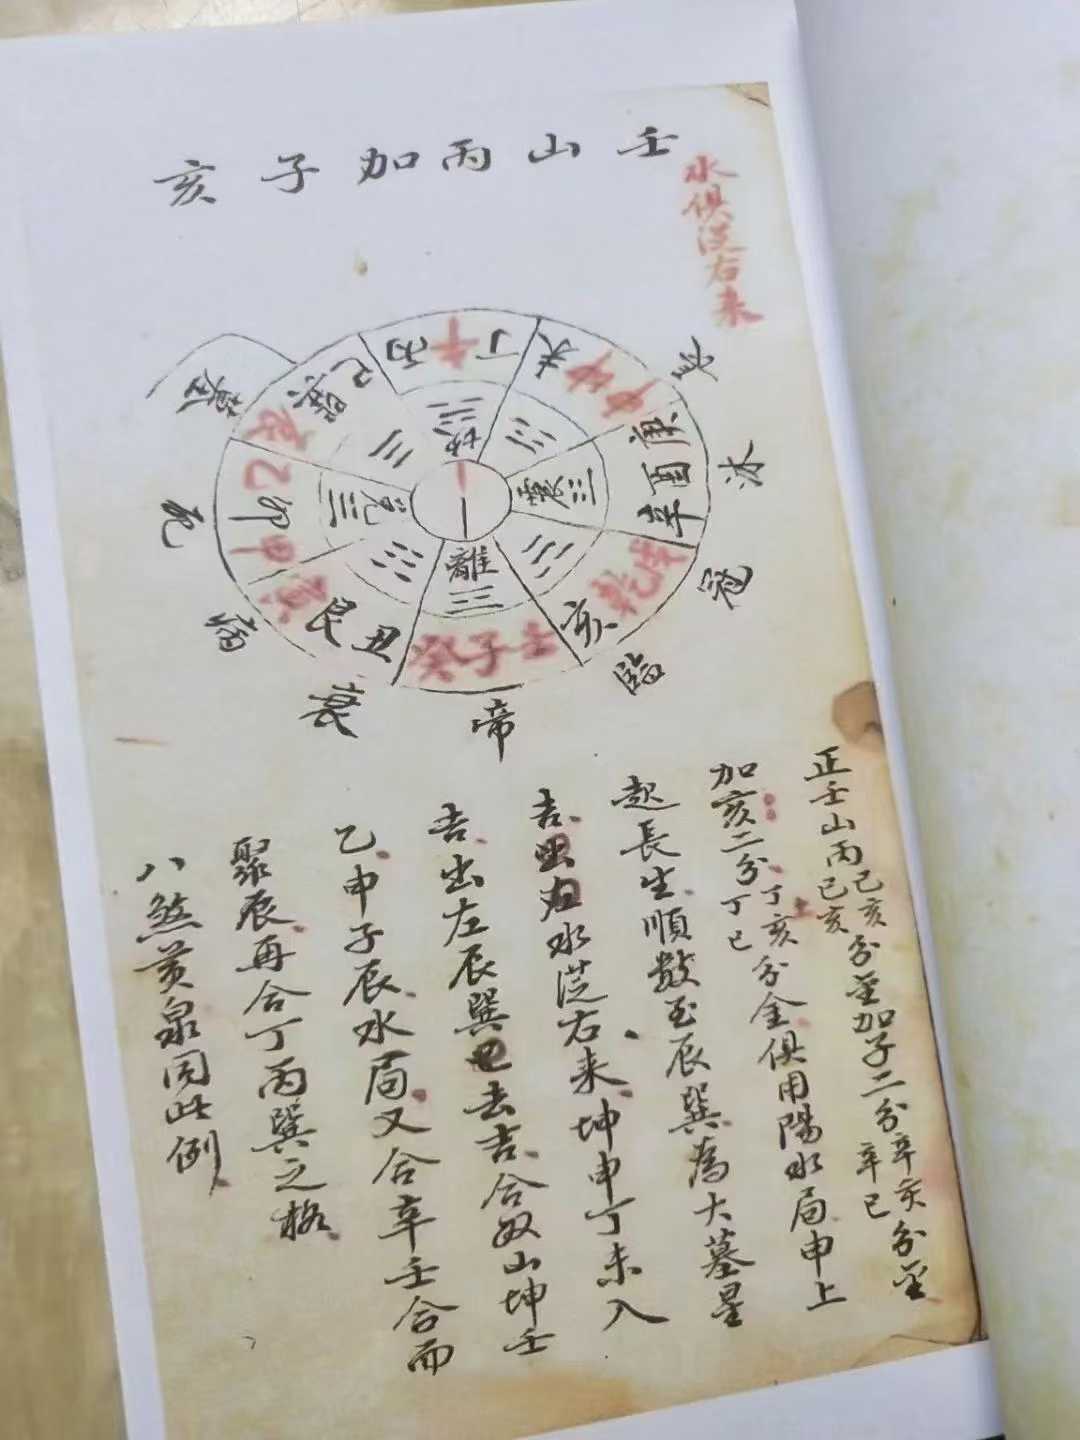 壬山丙加子亥
水俱從右来
未
丁午丙
巳巽
辰
乙卯甲
艮丑
癸子壬
亥乾戌
辛酉庚
坎
震
離
兌
生
沐
冠
臨
帝
衰
病
死
墓
正壬山丙己亥己亥分金加子二分辛亥辛巳分金
加亥二分丁亥丁巳分金俱用陽水局申上
起長生順數至辰巽為大墓星
吉出右水從右来坤申丁未入
吉出左辰巽巳去吉合奴山坤壬
乙申子辰水局又合辛壬合而
聚辰再合丁丙巽之格
八煞黃泉同此例